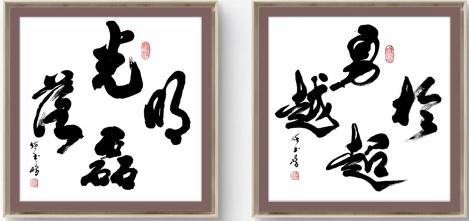 光明磊落
勇於超越